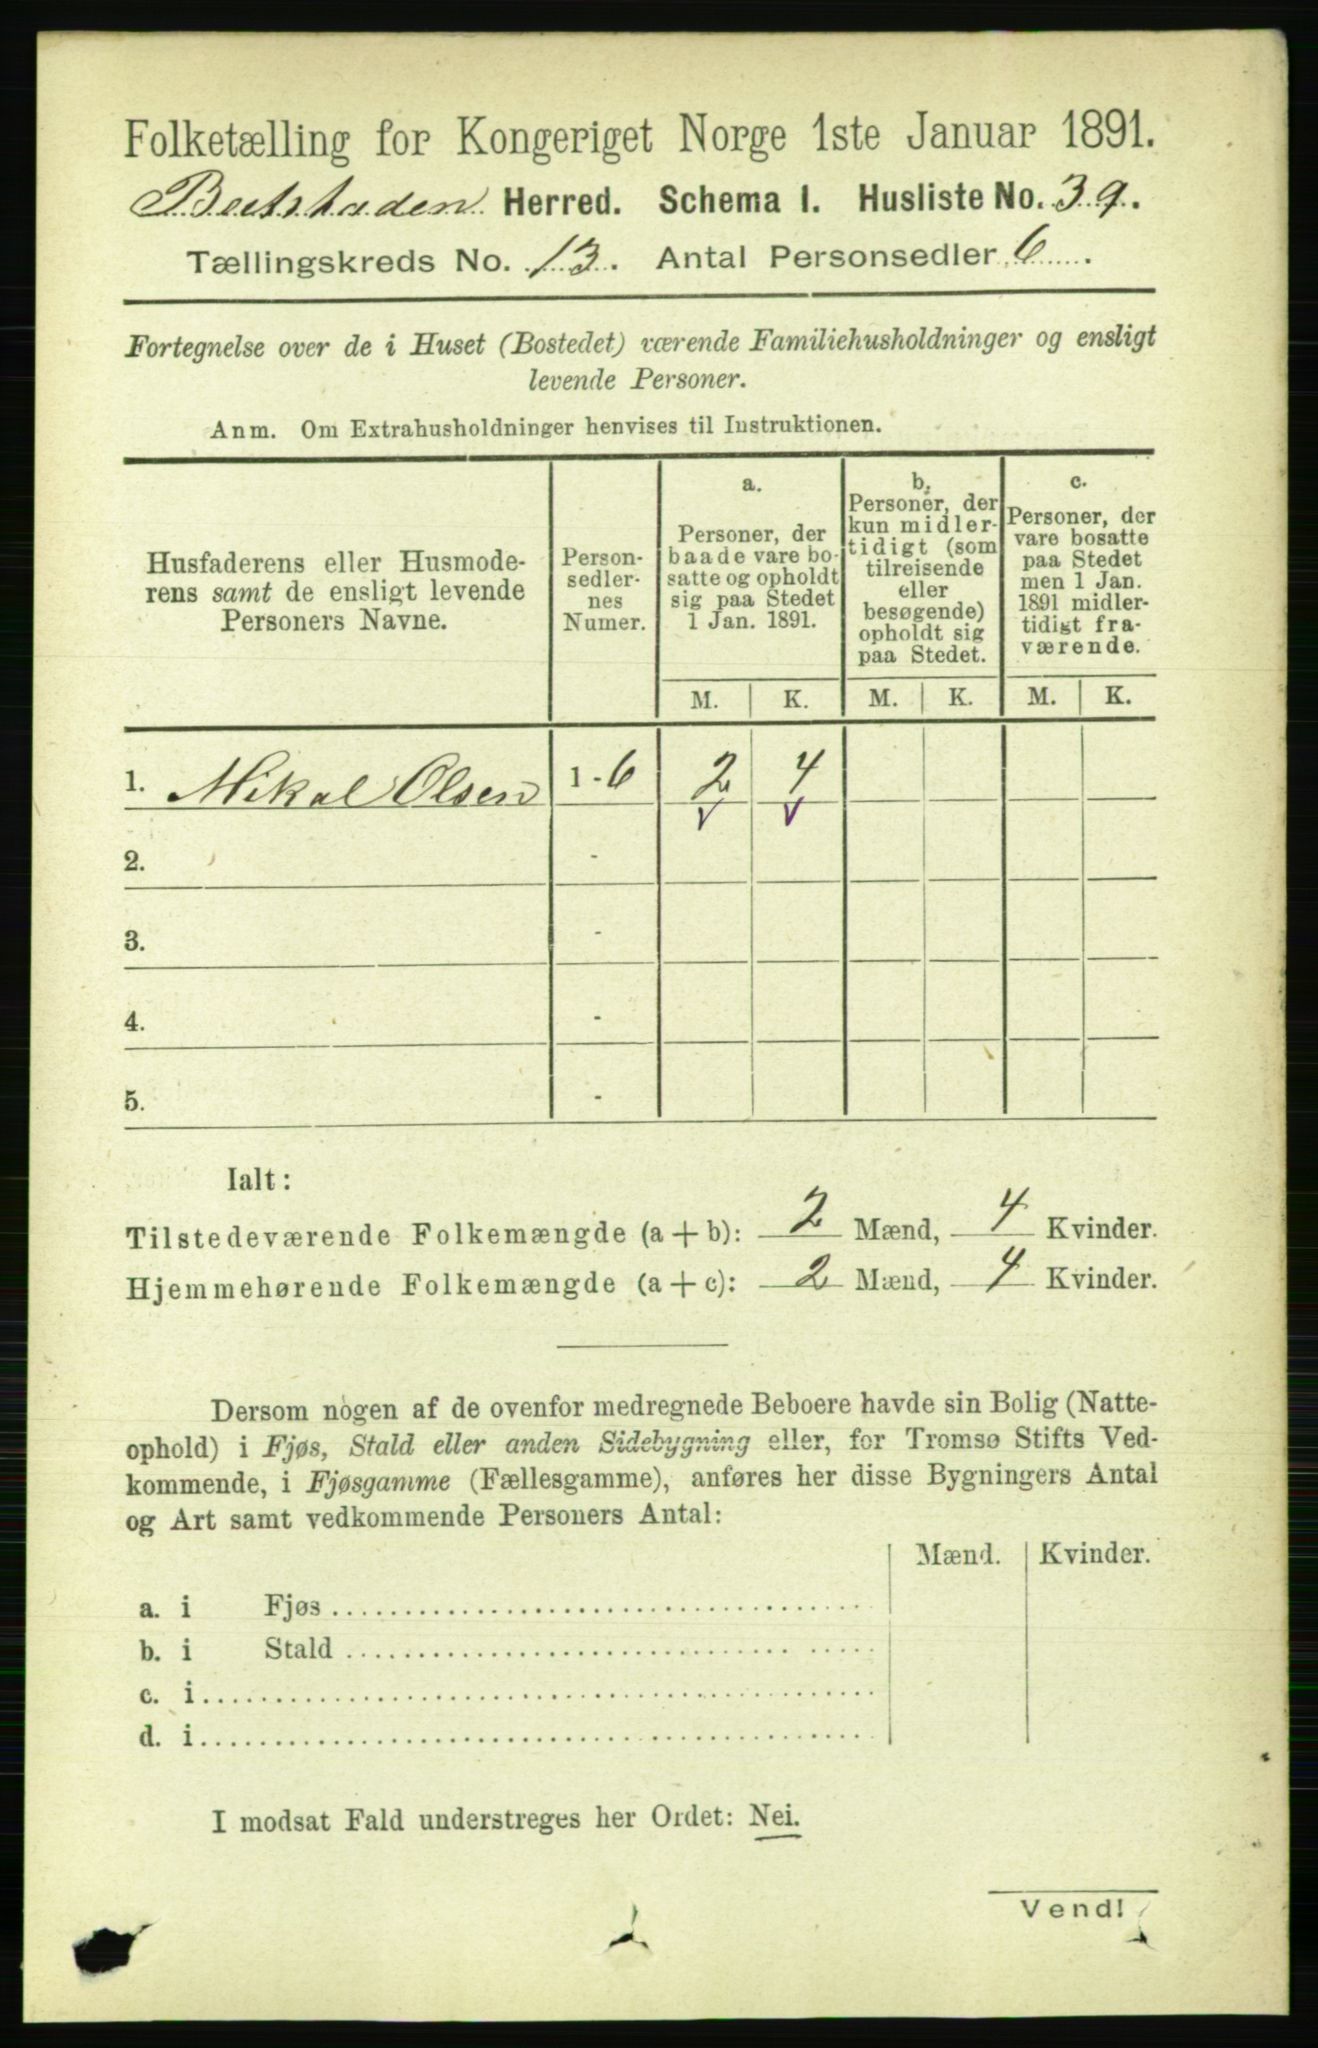 Folketælling for Kongeriget Norge 1ste Januar 1891.
Beitstaden Herred. Schema I. Husliste No. 39.
Tællingskreds No. 13. Antal Personsedler 6.
Fortegnelse over de i Huset (Bostedet) værende Familiehusholdninger og ensligt
levende Personer.
Anm. Om Extrahusholdninger henvises til Instruktionen.
Husfaderens eller Husmode-
rens samt de ensligt levende
Personers Navne.
Person-
sedler-
nes
Numer.
a.
Personer, der
baade vare bo-
satte og opholdt
sig paa Stedet
1 Jan. 1891.
b.
Personer, der
kun midler-
tidigt (som
tilreisende
eller
besøgende)
opholdt sig
paa Stedet.
c.
Personer, der
vare bosatte
paa Stedet
men 1 Jan.
1891 midler-
tidigt fra-
værende.
M. K. M. K. M. K.
1. Mikal Olsen 1 - 6 2 4
v v
2. -
3. -
4. -
5. -
Ialt:
Tilstedeværende Folkemængde (a + b): 2 Mænd, 4 Kvinder.
Hjemmehørende Folkemængde (a + c): 2 Mænd, 4 Kvinder.
Dersom nogen af de ovenfor medregnede Beboere havde sin Bolig (Natte-
ophold) i Fjøs, Stald eller anden Sidebygning eller, for Tromsø Stifts Ved-
kommende, i Fjøsgamme (Fællesgamme), anføres her disse Bygningers Antal
og Art samt vedkommende Personers Antal:
Mænd. Kvinder.
a. i Fjøs
b. i Stald
c. i
d. i
I modsat Fald understreges her Ordet: Nei.
Vend!